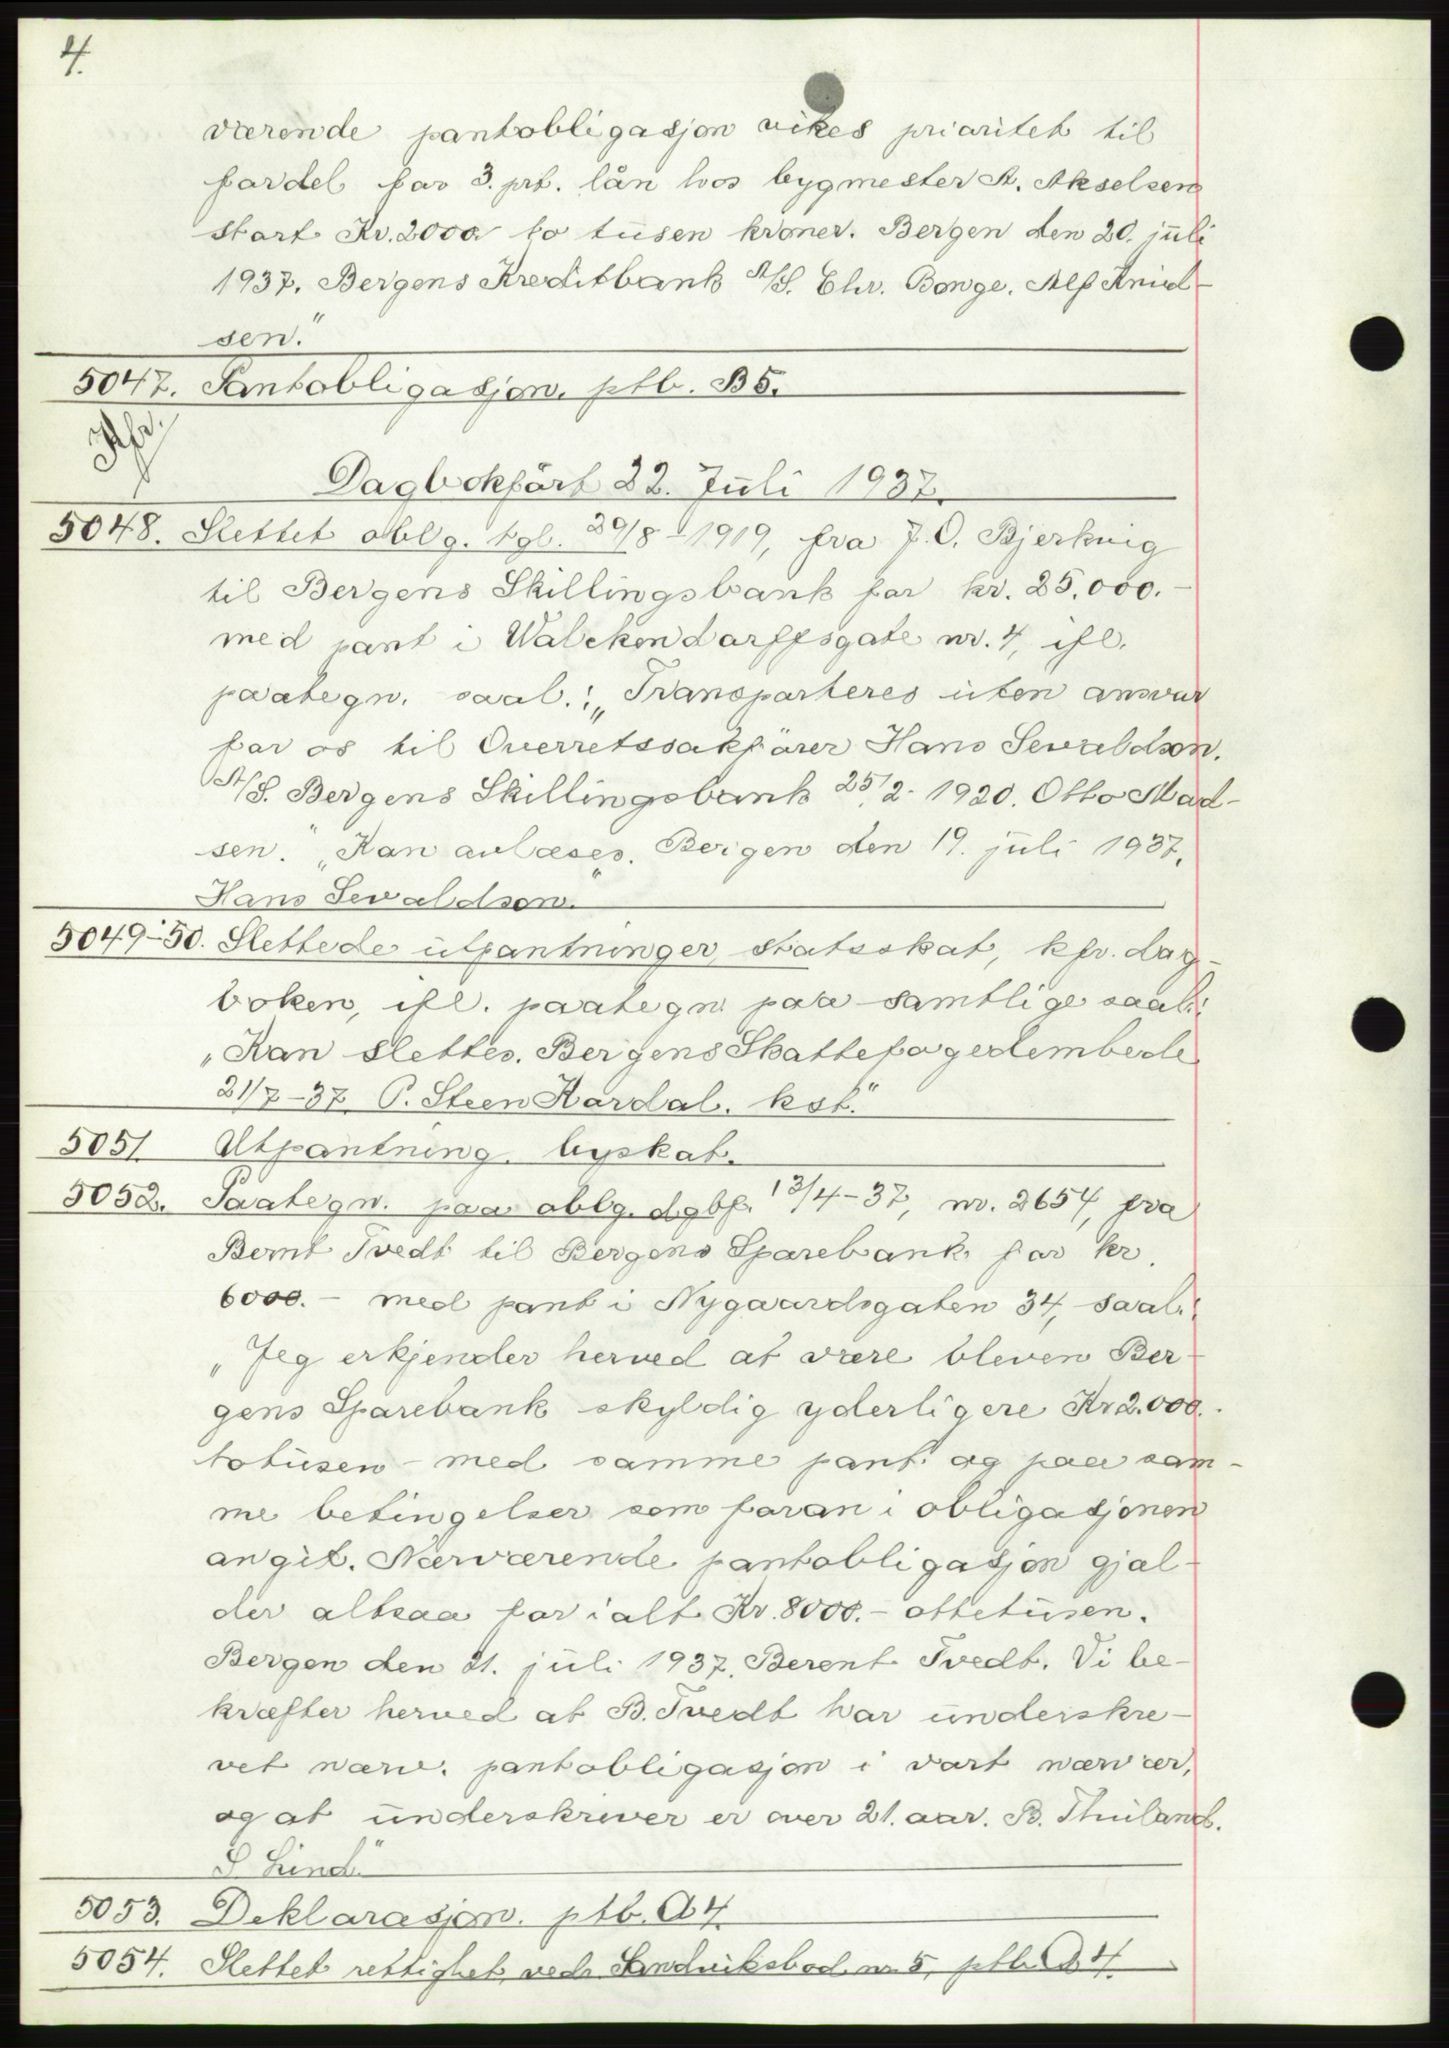 4.
værende pantobligasjon vikes prioritet til
fordel for 3. prt. lån hos bygmester A. Akselsen
stort Kr. 2000 to tusen kroner. Bergen den 20. juli
1937. Bergens Kreditbank A/S. Chr. Bonge. Alf Knud-
sen."
5047. Pantobligasjon. ptb. B5.
Kfr.
Dagbokført 22. Juli 1937.
5048. Slettet oblg. tgl. 29/8-1919, fra J. O. Bjerkvig
til Bergens Skillingsbank for kr. 25.000.-
med pant i Walckendorffsgate nr. 4, ifl.
paategn. saal.: „Transporteres uten ansvar
for os til Overretssakfører Hans Sevaldson.
A/S. Bergens Skillingsbank 25/2-1920. Otto Mad-
sen." „Kan avlæses. Bergen den 19. juli 1937.
Hans Sevaldson."
5049-50. Slettede utpantninger, statsskat, kfr. dag-
boken, ifl. paategn paa samtlige saal.:
„Kan slettes. Bergens Skattefogedembede
21/7-37. P. Steen Hardal. kst."
5051 Utpantning. byskat.
5052. Paategn. paa oblg. dgbf. 13/4-37, nr. 2654, fra
Bernt Tvedt til Bergens Sparebank for kr.
6000.- med pant i Nygaardsgaten 34, saal.:
„Jeg erkjender herved at være bleven Ber-
gens Sparebank skyldig yderligere Kr 2.000.-
totusen - med samme pant og paa sam-
me betingelser som foran i obligasjonen
angit. Nærværende pantobligasjon gjæl-
der altsaa for ialt Kr. 8000.- ottetusen.
Bergen den 21. juli 1937. Berent Tvedt. Vi be-
kræfter herved at B. Tvedt har underskre-
vet nærv. pantobligasjon i vort nærvær,
og at underskriver er over 21. aar. B. Thuland.
S Lind."
5053. Deklarasjon. ptb. A4.
5054. Slettet rettighet vedr. Sandviksbod nr 5, ptb. A4.